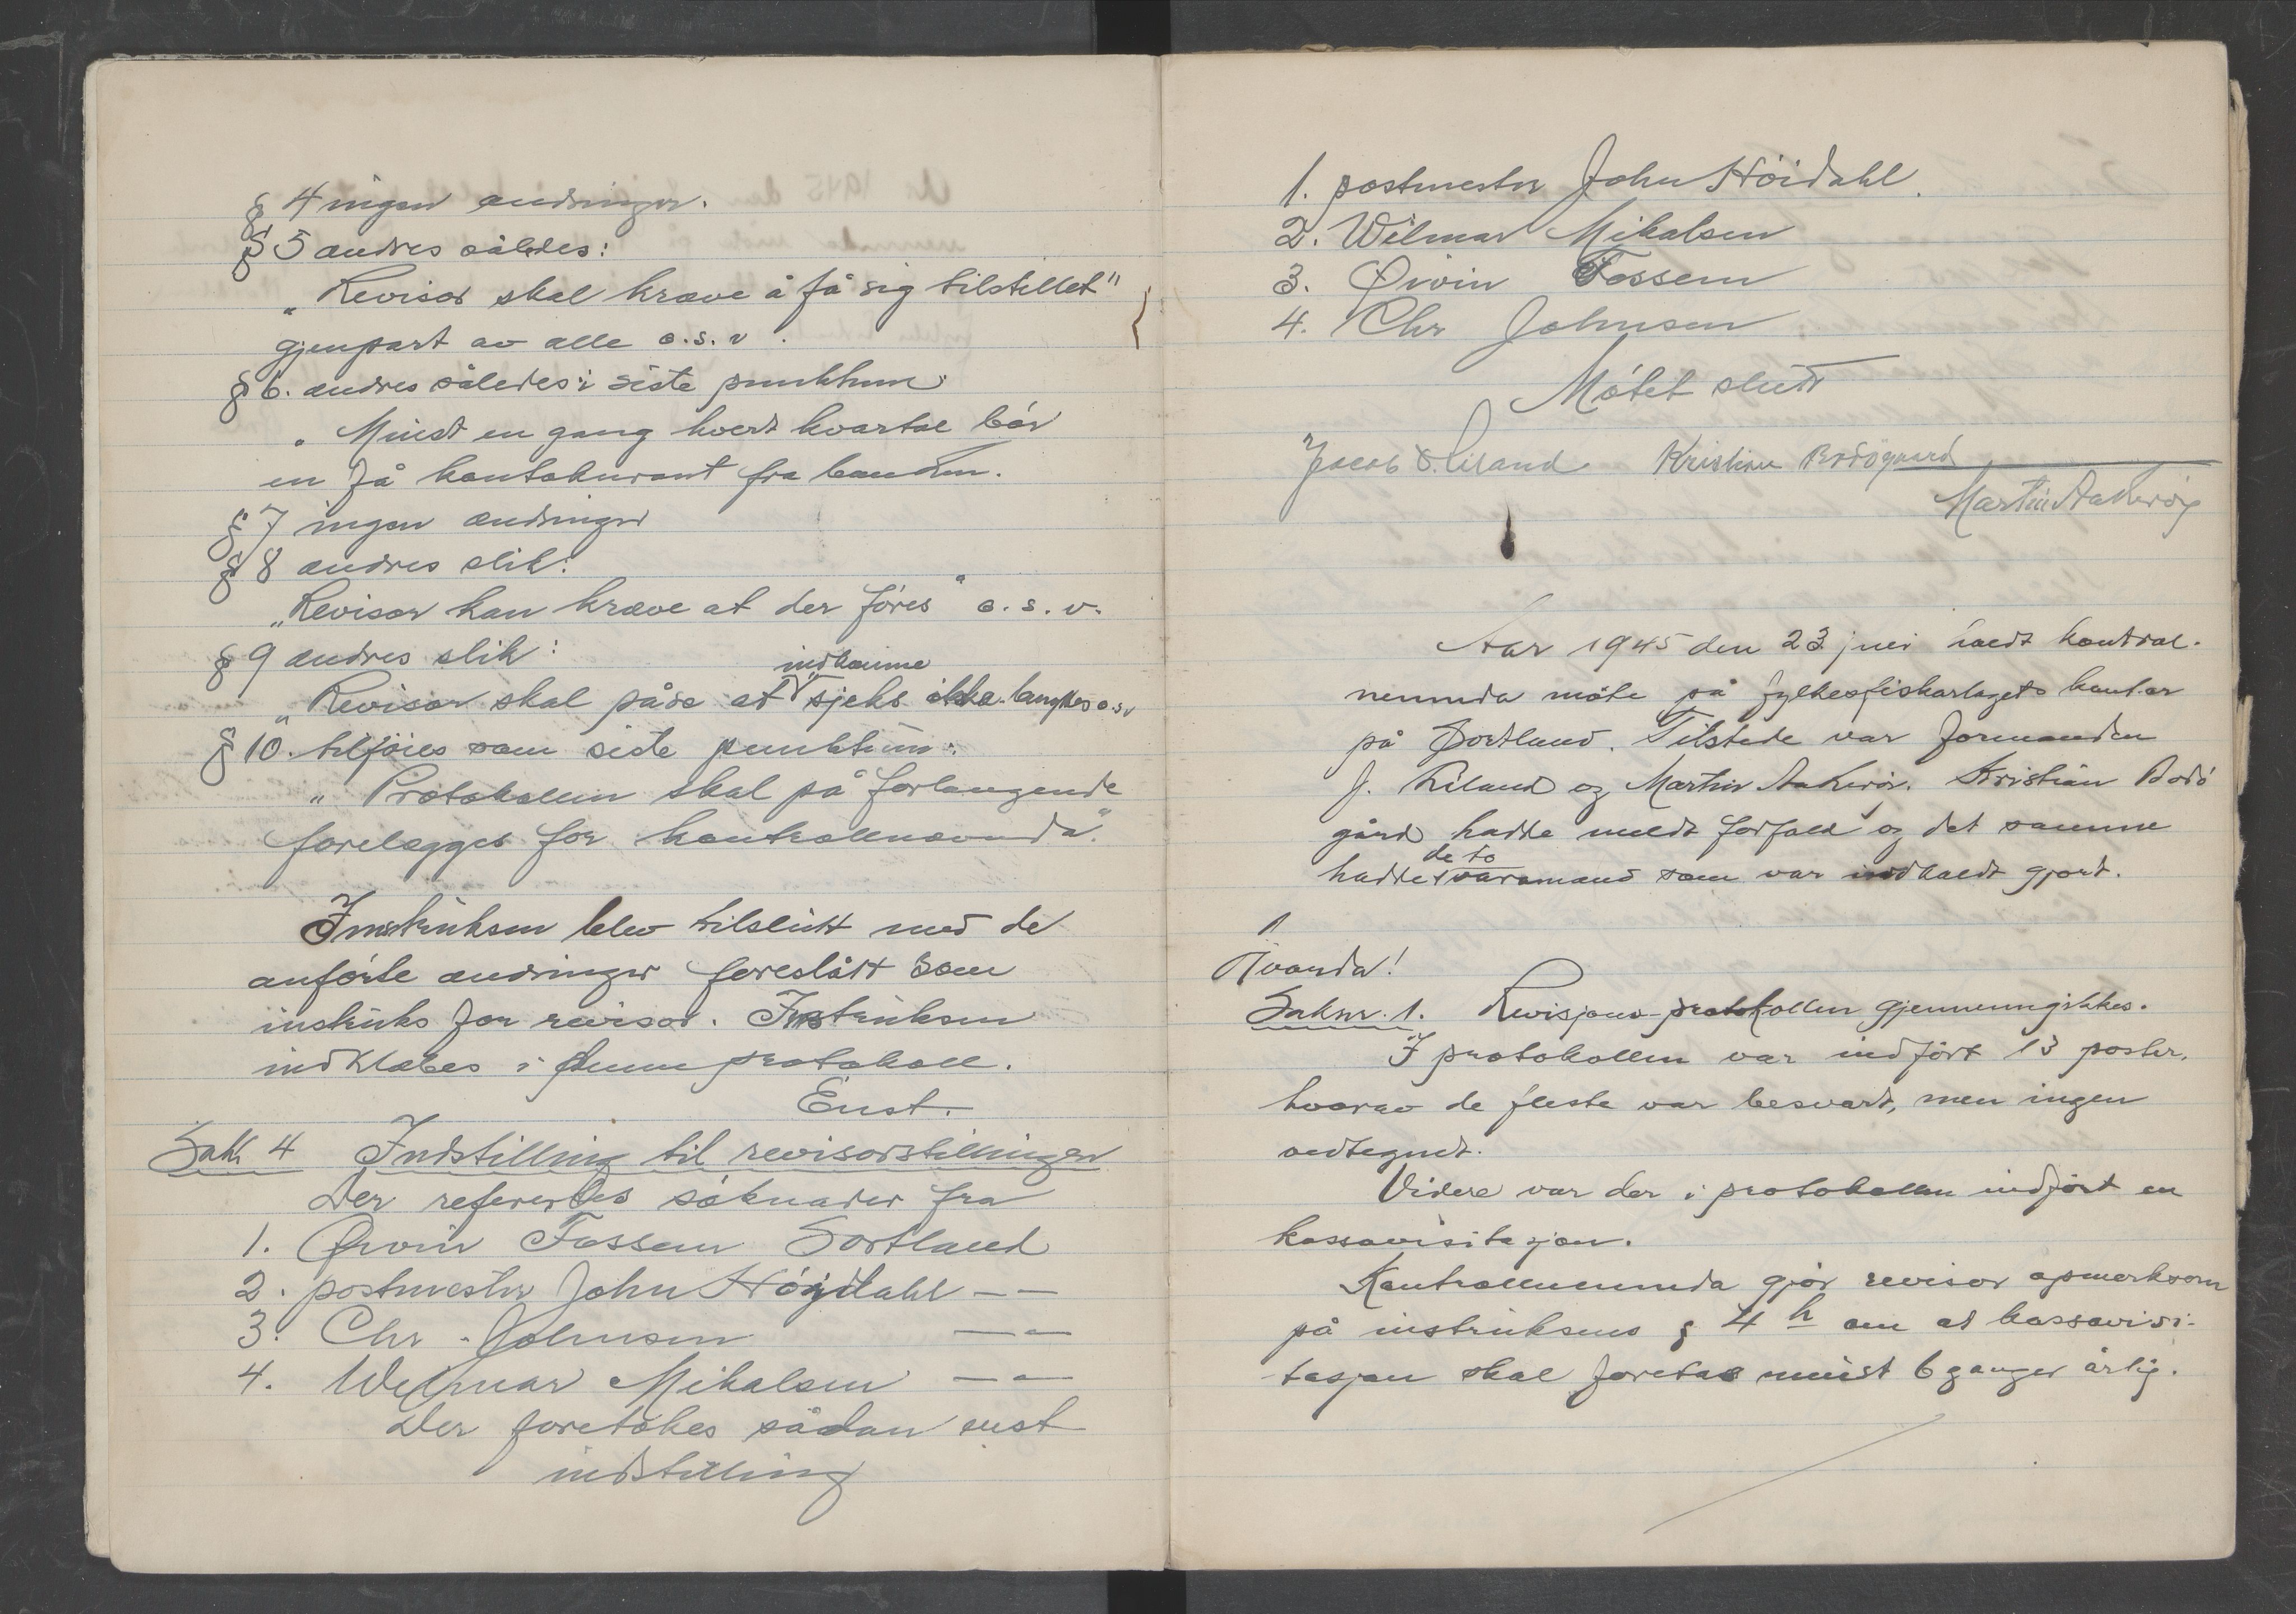 § 4 ingen endringer.
§ 5 endres således:
„Revisor skal kræve å få sig tilstillet"
gjenpart av alle o.s.v.
§ 6. endres således i siste punktum:
„Minst en gang hvert kvartal bør
en få kontokurant fra banken.
§ 7 ingen endringer
§ 8 endres slik:
„Revisor kan kræve at der føres" o.s.v.
§ 9 endres slik:
indkomne
„Revisor skal påse at sjeks ikke o.s.v
§ 10. tilføies som siste punktum:
„Protokollen skal på forlangende
forelægges for kontrollnevnda".
Instruksen blev tilslutt med de
anførte endringer foreslått som
instruks for revisor. Instruksen
indklæbes i denne protokoll.
Enst.
Sak 4 Indstilling til revisorstillingen
Der refertes søknader fra
1. Øivin Fossem Sortland
2. postmester John Höydahl — —
3. Chr. Johnsen — " —
4. Wilmar Mikalsen — " —
Der foretokes sådan enst
indstilling
1. postmester John Höidahl.
2. Wilmar Mikalsen
3. Øivin Fossem
4. Chr Johnsen
Møtet slutt
Jacob Liland Kristian Bodøgaard
Martin Aakerøy
Aar 1945 den 23 juni holdt kontrol-
nemnda møte på fylkesfiskarlagets kontor
på Sortland. Tilstede var formanden
J. Liland og Martin Aakerøy. Kristian Bodø
gård hadde meldt forfald og det samme
de to
hadde varamænd som var indkaldt gjort.
Sak nr. 1. Revisjons-protokollen gjennemgikkes.
I protokollen var indført 13 poster,
hvorav de fleste var besvart, men ingen
vedtegnet.
Videre var der i protokollen indført en
kassavisitasjon.
Kontrollnemnda gjør revisor opmerksom
på instruksens § 4 h om at kassavisi-
tasjon skal foretas minst 6 ganger årlig.